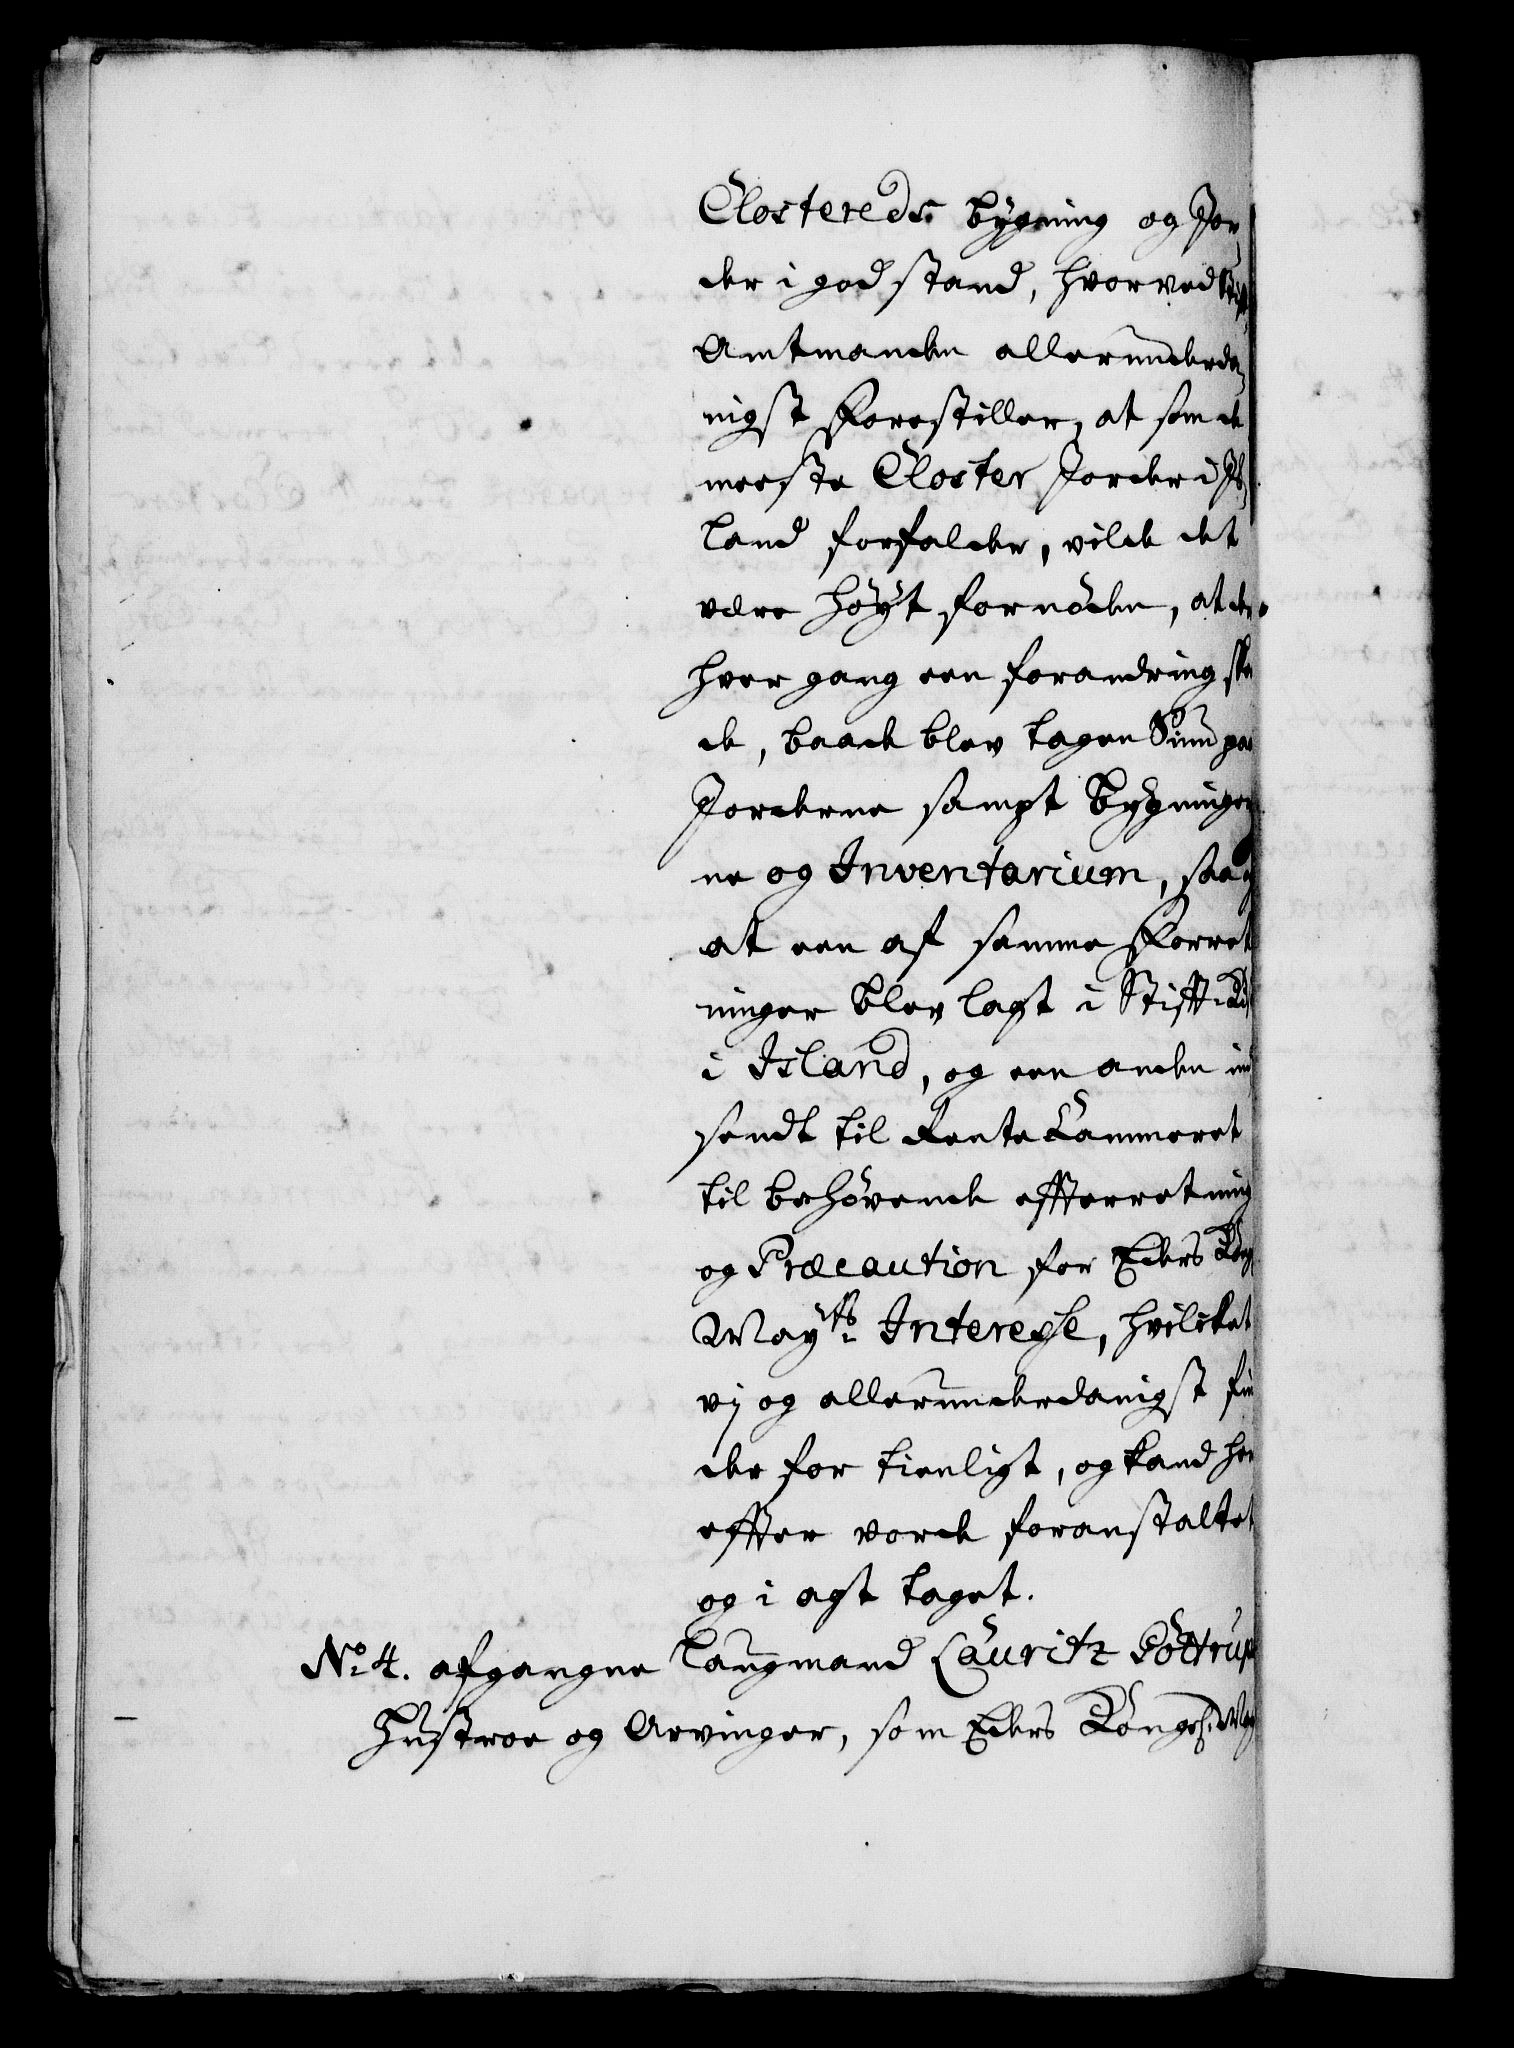 Closteredz bygning og Jor
der i god stand, hvorved Stifft
Amtmanden allerunderda
nigst Forestiller, at som de
meeste Closter Jorder i Jß
land forfalder, vilde det
være höyt fornöden, at der
hver gang een forandring skee
de, baade blev tagen Siun paa
Jorderne sampt bygninger
ne og Inventarium, saa og
at een af samme Forret
ninger blev lagt i Stifft-Kist
i Island, og een anden ind
sendt til Rente Cammeret
til behövende effterretning
og Præcaution for Eders Kong
May:ts Interesse, hvilcket
vj og allerunderdanigst fin
der for tienligt, og kand her
effter vorde foranstaltet
og i agt taget.
No 4. afgangne Laugmand Lauritz Göttrups
Hustroe og Arvinger, som Eders Konges: May